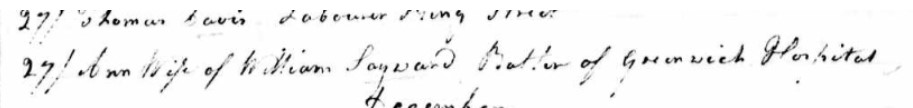 27/ Thomas Davis Labourer King Street
27/ Ann Wife of William Sayward of Greenwich Hospital